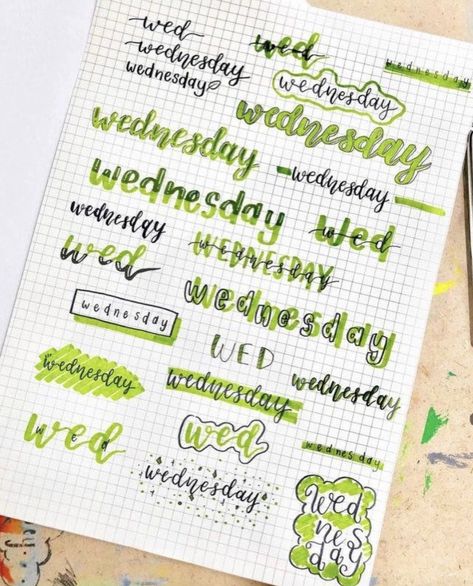 wed
wednesday
wednesday
wed
wed
wednesday
wednesday
wednesday
wednesday
wednesday
wednesday
wednesday
wed
wed
WEDNESDAY
wednesday
wed
wednesday
wednesday
WED
wednesday
wednesday
wednesday
wed
wed
wed
wednesday
wednesday
Wed
nes
day